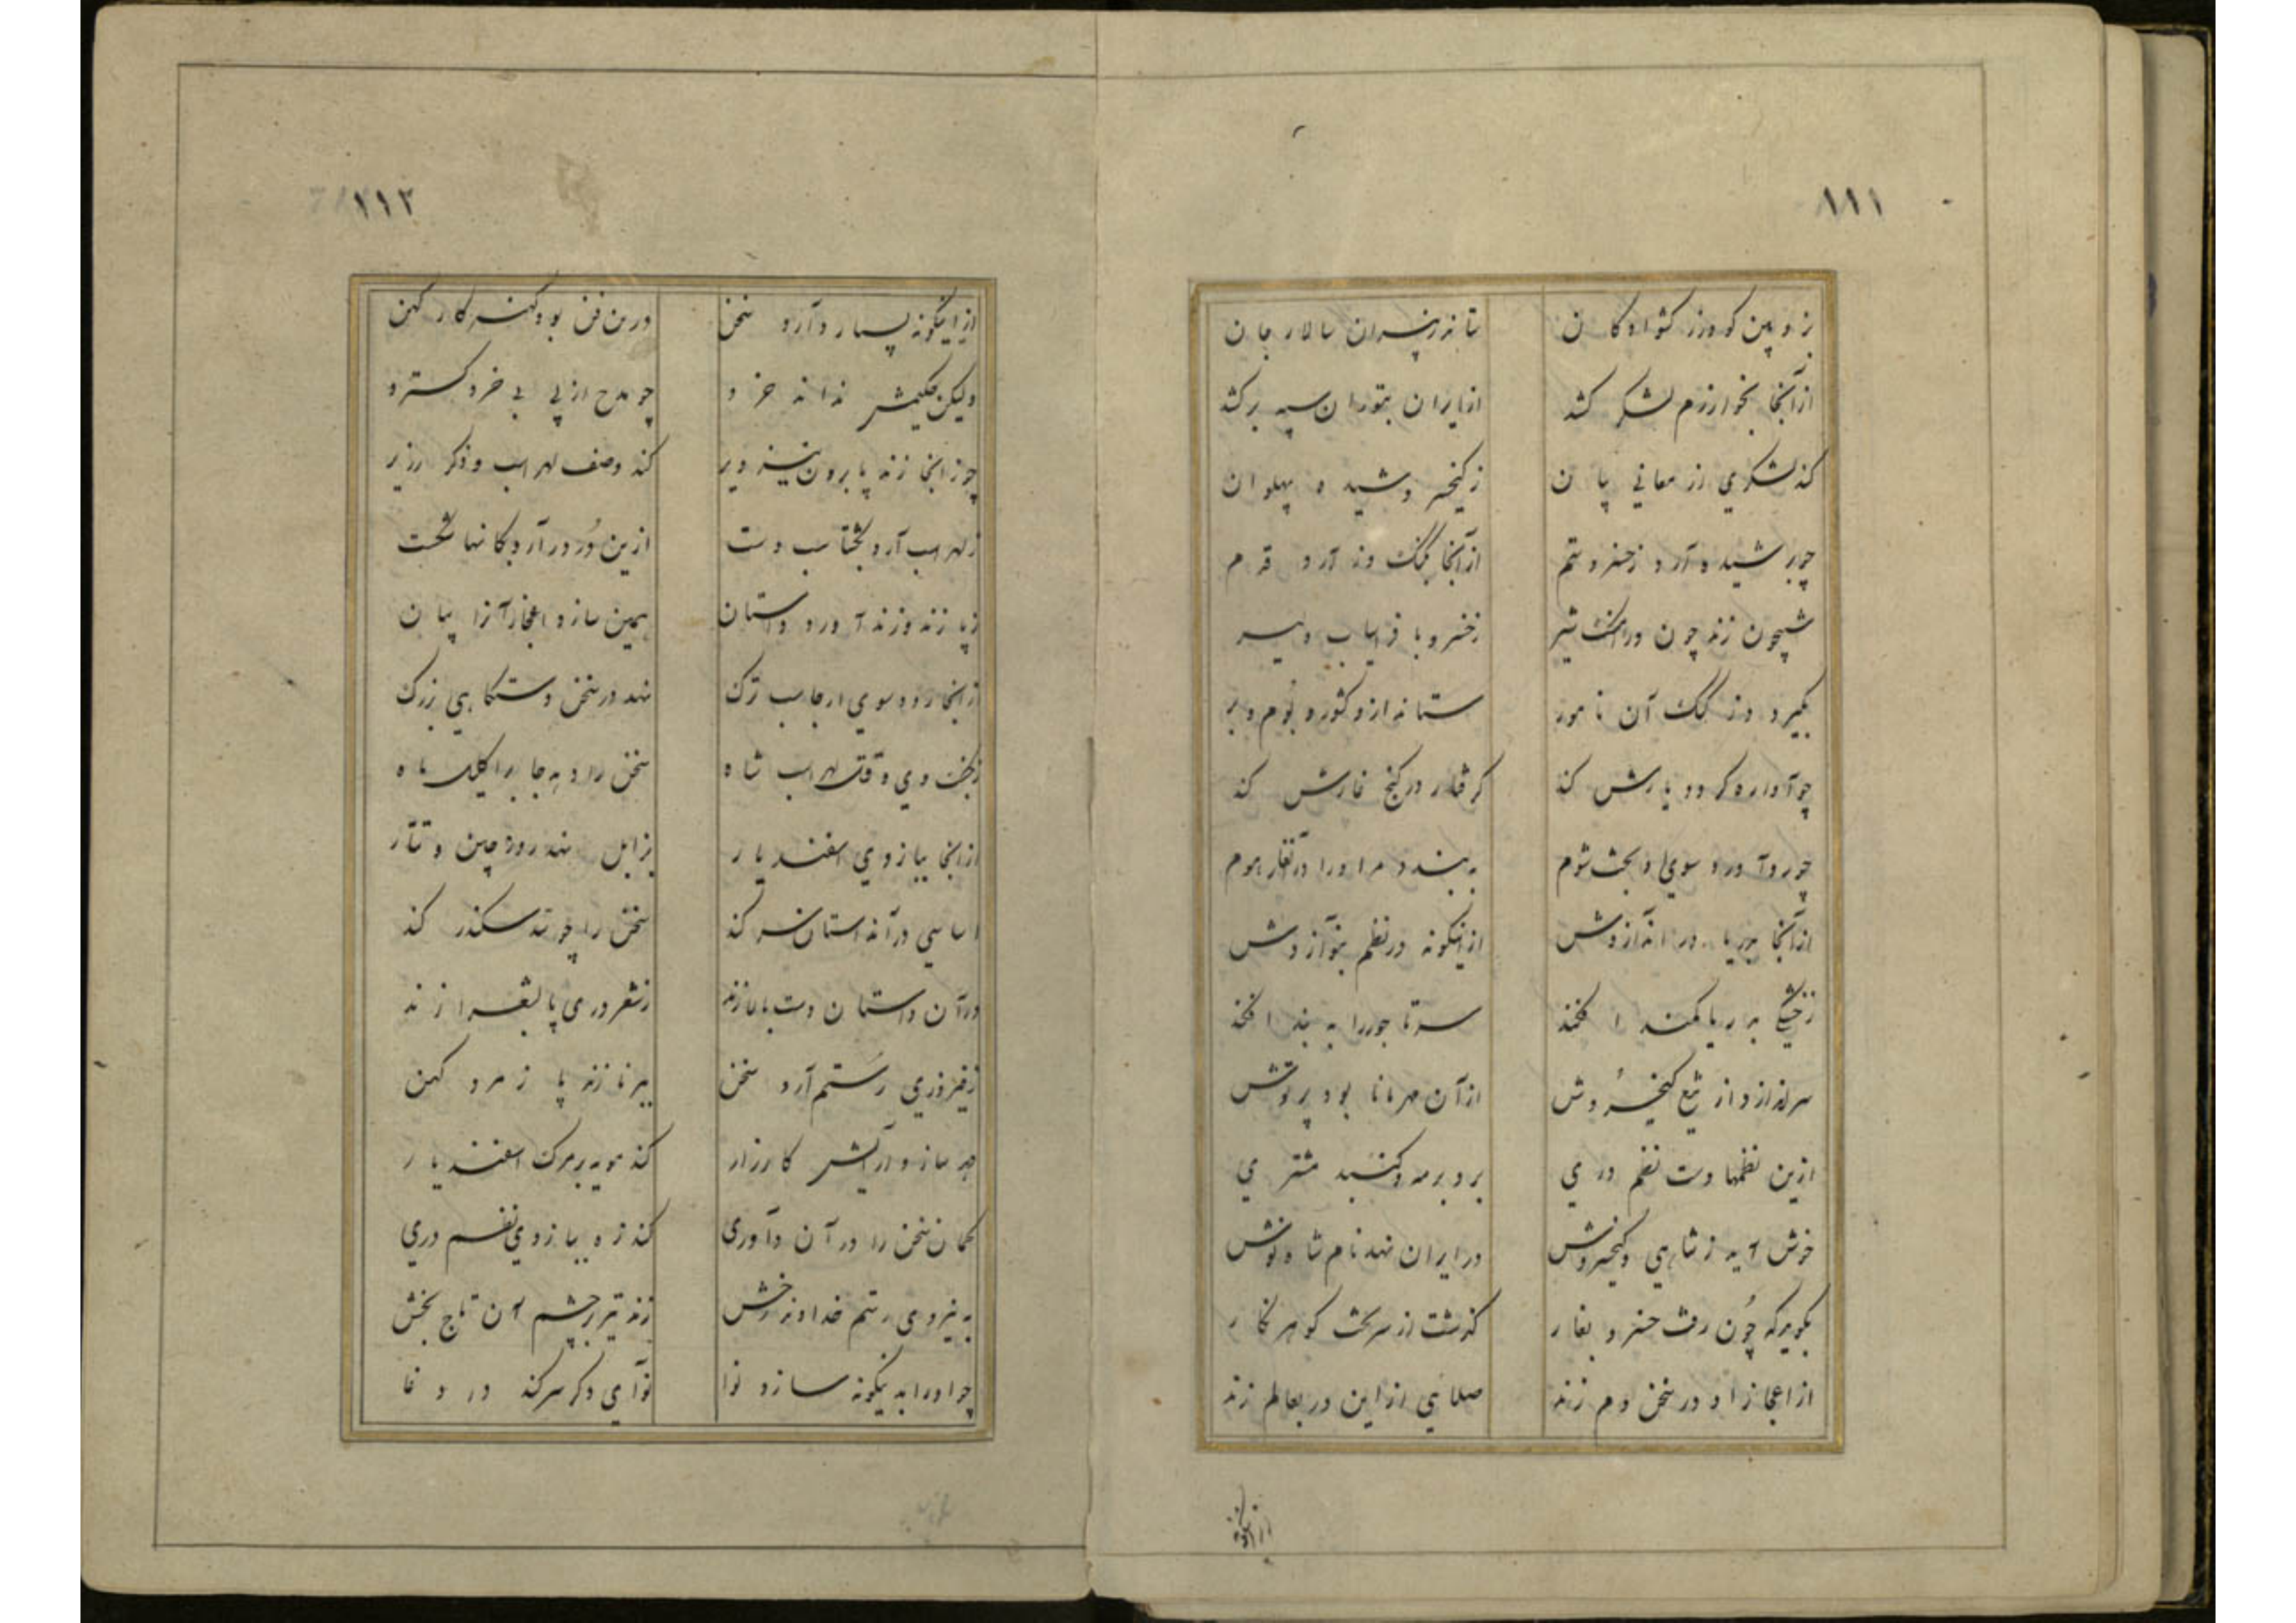 ١١١
ز و پین کودرز کشوادکان ستاند ز پیران سالار جان
از آنجا بخوارزم لشکر کشد از ایران بتوران سپه برکشد
کند لشکری از معانی بیان ز کیخسرو شیده پهلوان
چو بر شیده آرد ز خسرو ستم از آنجا بکنک دز آرد قدم
شبیخون زند چون در آن کنک شیر ز خسرو با فراسیاب دلیر
بگیرد دز کنک آن نامور ستاند ازو کشور و بوم و بر
چو آواره کرد و یارش کند کرفتار در کنج غارش کند
چو رو آورد سوی آن بحث شوم ببندد مر او را در آن غار هوم
از آنجا بدریا در اندازدش از اینکونه در نظم بنوازدش
ز خشکی بدریا کمند افکند سر تاجور را به بند افکند
سر اندازد از تیغ کیخسروش از آن مهر مانا بود پرتوش
ازین نظمها دست نظم دری برد بر مه و کنبد مشتری
خوش آید ز شاهی کیخسروش در ایران نهد نام شاه نوش
بگوید که چون رفت خسرو بغار کذشت از سر تخت کوهر نکار
از اعجاز او در سخن دم زند صلائی از این در بعالم زند
از اینکونه
١١٢
از اینکونه بسیار دآرد سخن درین فن بود کهنه کار کهن
ولیکن حکیمش نداند خرد چو مدح از پی بی خرد کسترد
چو ز اینجا زند پا برون نیز دیر کند وصف لهراسب و ذکر زریر
ز لهراسب آرد بکشتاسب دست ازین دُر در آرد بکانها شکست
ز پازند و زند آورد داستان همین سازد اعجاز آنرا بیان
ز اینجا رود سوی ارجاسب ترک نهد در سخن دستکاهی بزرک
ز بخت وی و وقت لهراسب شاه سخن را دهد جا بر اکلیل ماه
از اینجا ببازوی اسفندیار بزابل نهد رو ز چین و تتار
اساسی در آن داستان سر کند سخن را چو سد سکندر کند
در آن داستان دست بالا زند ز شعر دری پا بشعرا زند
ز فیروزی رستم آرد سخن ببرنا زند پا ز مرد کهن
چو سازد و آرایش کارزار کند مویه بر مرک اسفندیار
کمان سخن را در آن دآوری کند زه ببازوی نظم دری
به نیروی رستم خداوند رخش زند تیر بر چشم آن تاج بخش
چو او را بدینکونه سازد نوا نوآی دکر سر کند در وغا